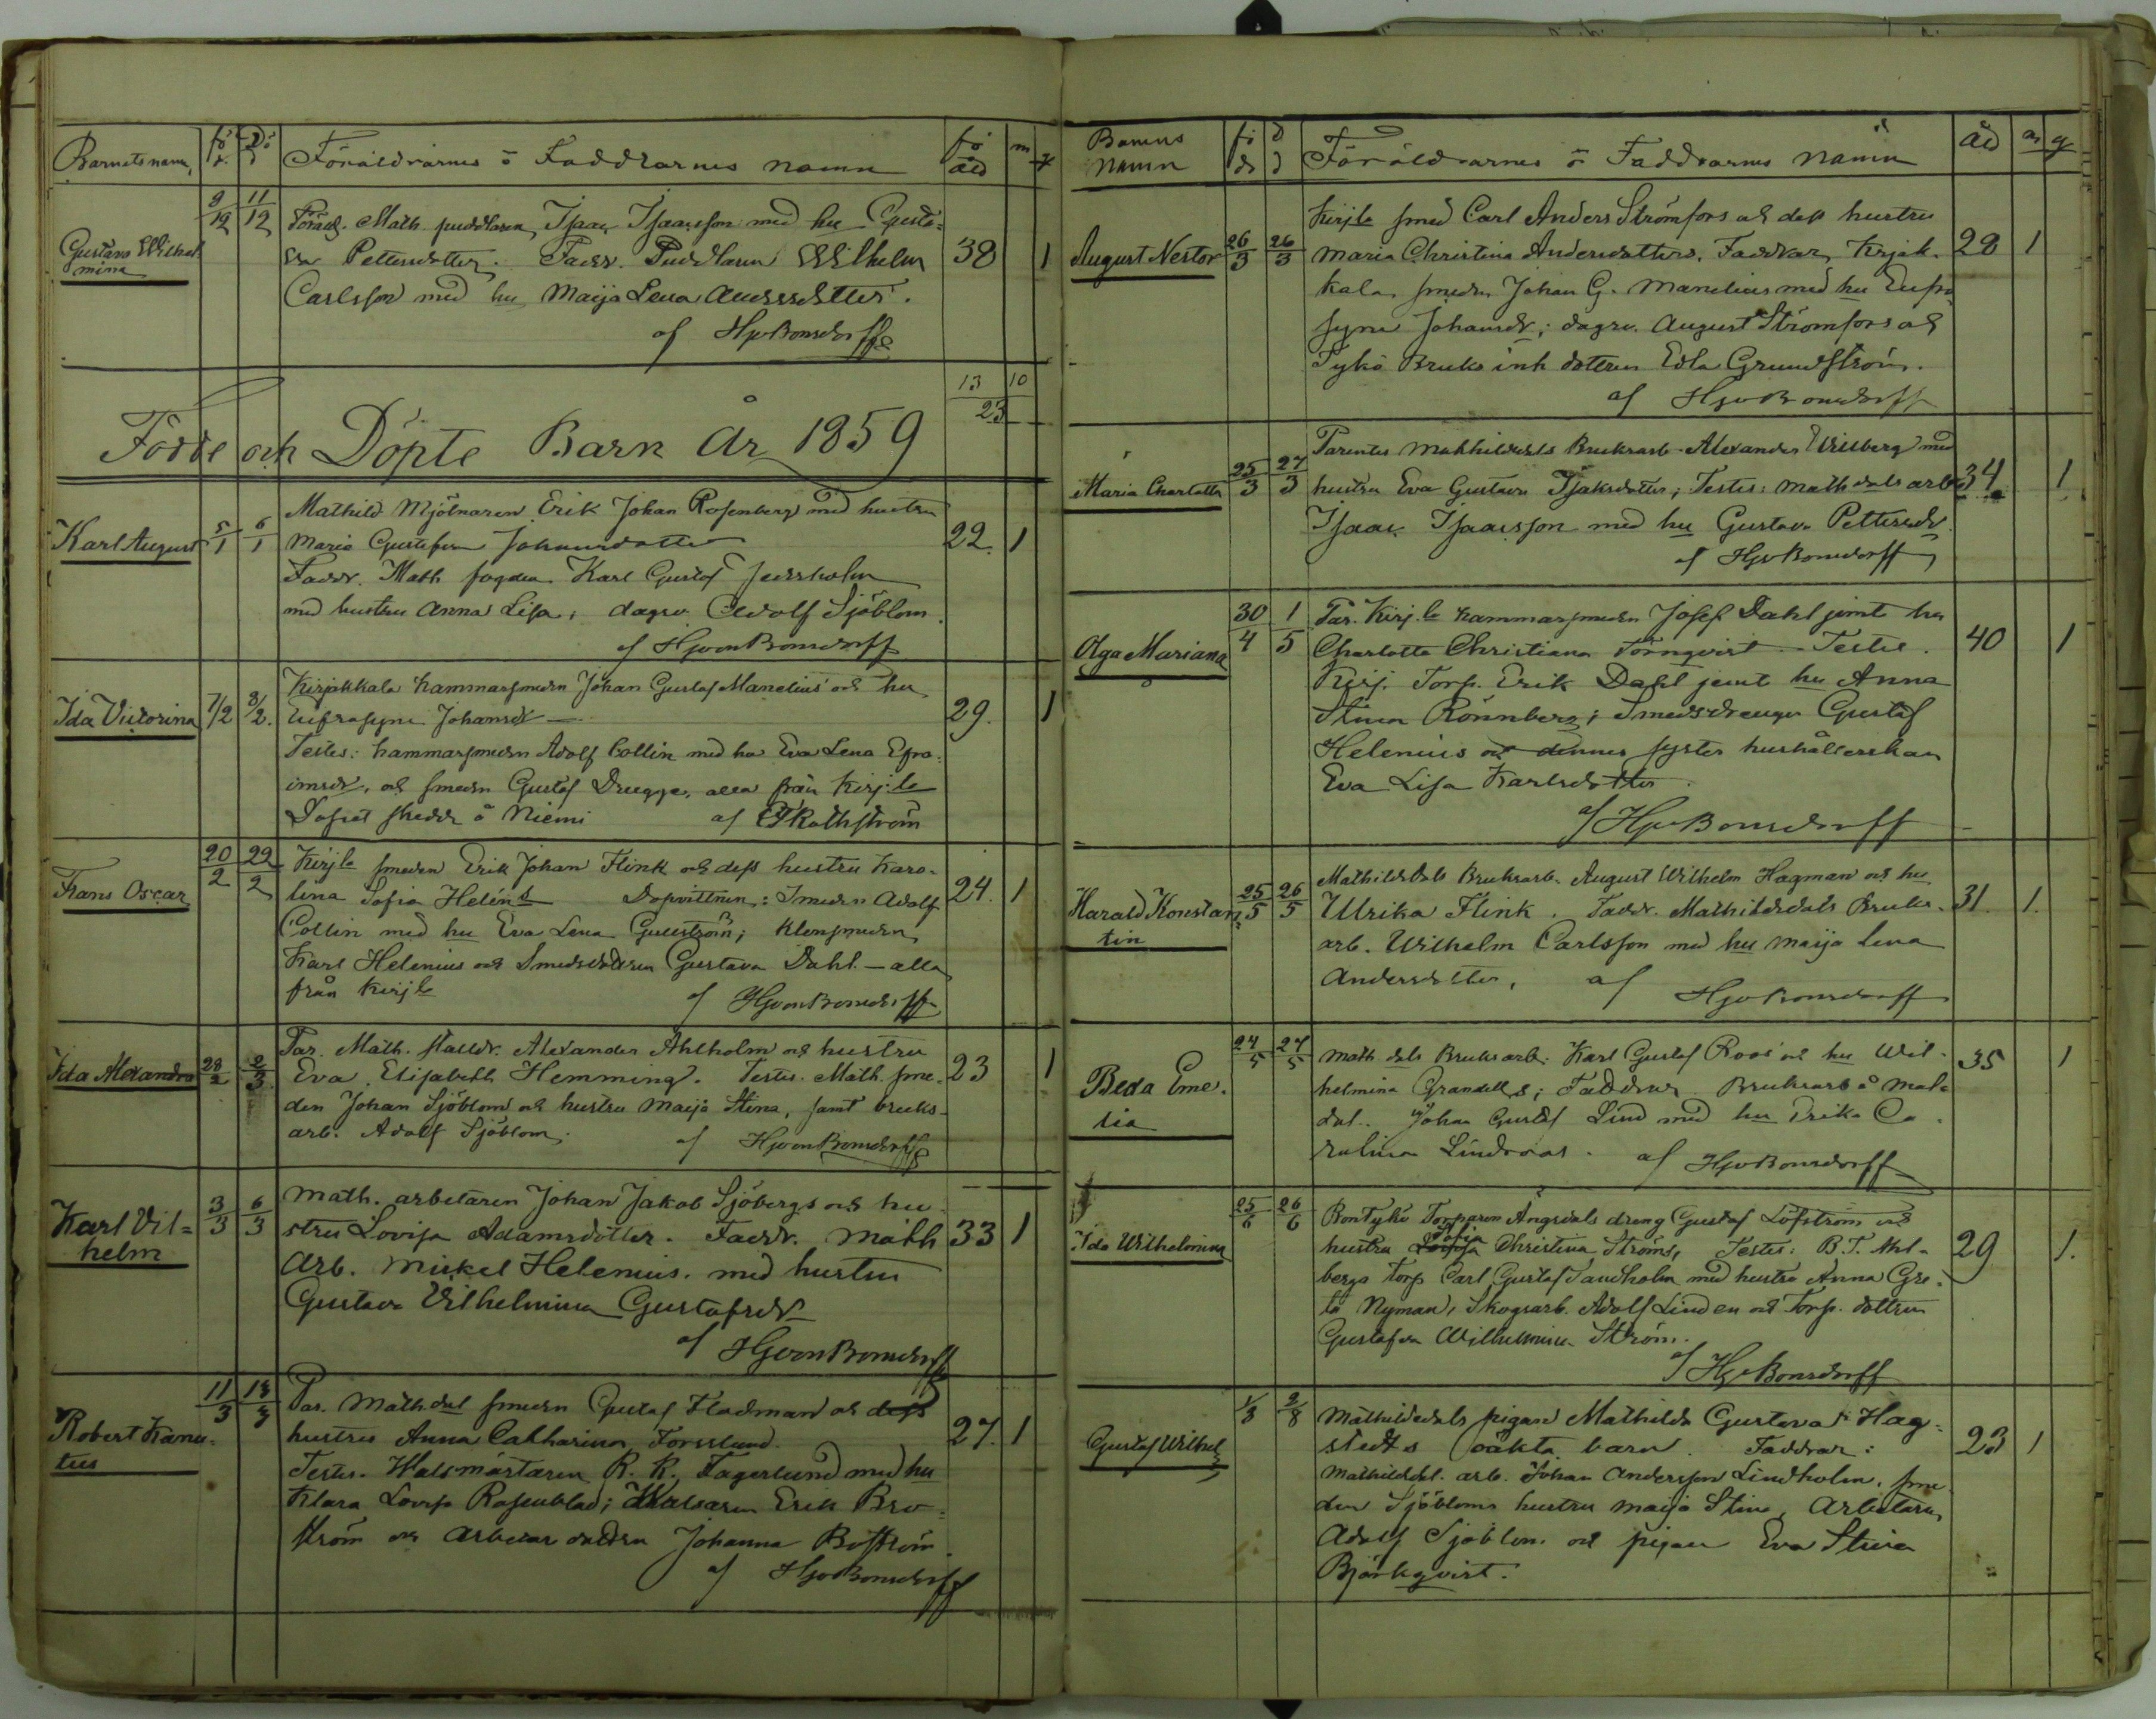 Barnets namn fö d. Dö d Föräldrarnes o Faddrarnes namn fö åld m q
Gustava Wilhel-
mina 9/12 11/12 Föräld. Math. puddlaren Isaac Isaacsson med hu Gusta-
va Pettersdotter. Faddr. Puddlaren Wilhelm 38 1
Carlsson med hu Maija Lena Andersdotter.
af HGvBonsdorff
13 10
23
Födde och Döpte Barn År 1859
Karl August 5/1 6/1 Mathild Mjölnaren Erik Johan Rosenberg med hustru
Maria Gustafva Johansdotter 22. 1
Faddr. Math fogden Karl Gustaf
med hustru Anna Lisa; dagsv. Adolf Sjöblom.
af HGvonBonsdorff
Ida Victorina 7/2 8/2. Kirjakkala hammarsmeden Johan Gustaf Manelius och hu
Eufrosyne Johansdr — 29. 1
Testes: hammarsmeden Adolf Collin med hu Eva Lena Efra-
imsdr, och smeden Gustaf Drugge, alla från Kirj-la
Dopet skedde å Niemi af Rothström
Frans Oscar 20/2 22/2 Kirjla smeden Erik Johan Flink och dess hustru Karo-
lina Sofia Heléns Dopvittnen: Smeden Adolf 24. 1
Collin med hu Eva Lena Gullström; Klensmeden
Karl Helenius och Smedsdottren Gustava Dahl. — alla
från Kirjla af HGvonBonsdorff
Ida Alexandra 28/2 2/3 Par. Math. Alexander Ahlholm och hustru
Eva Elisabeth Hemming. Testes. Math. sme- 23 1
den Johan Sjöblom och hustru Maija Stina, samt bruks-
arb. Adolf Sjöblom; af HGvonBonsdorff
Karl Vil=
helm 3/3 6/3 Math. arbetaren Johan Jakob Sjöbergs och hu-
stru Lovisa Adamsdotter. Faddr. Math 33 1
Arb. Mickel Helenius. med hustru
Gustava Vilhelmina Gustafsdr
af HGvonBonsdorff
Robert Kanu-
tus 11/3 13/3 Par. Math.dal smeden Gustaf Fladman och dess
hustru Anna Catharina Forsslund. 27. 1
Testes. Walsmästaren R. R. Fagerlund med hu
Klara Lovisa Rosenblad; Walsaren Erik Bro-
ström och arbetar dottren Johanna Boström.
af HGvBonsdorff
Barnens
namn fö d d d Föräldrarnes o Faddrarnes namn åld m q
August Nestor 26/3 26/3 Kirjla smed Carl Anders Strömfors och dess hustru
Maria Christina Andersdotters. Faddrar, Kirjak- 28 1
kala smeden Johan G. Manelius med hu Eufro-
syne Johansdr; dagsv. August Strömfors och
Tykö Bruks inh dottren Edla Grundström.
af HGvBonsdorff
Maria Charlotta 25/3 27/3 Parentes Mathildedals Bruksarb. Alexander Willberg med
hustru Eva Gustava Isaksdotter; Testes: Mathdals arb 34. 1
Isaac Isaacsson med hu Gustava Pettersdr
af HGvBonsdorff
Olga Mariana 30/4 1/5 Par. Kirj.la hammarsmeden Josef Dahl jemte hu
Charlotta Christiana Törnqvist — Testes. 40 1
Kirj. Torp. Erik Dahl jemt hu Anna
Stina Rönnberg; Smedsdrengen Gustaf
Helenius och dennes syster hushållerskan
Eva Lisa Karlsdotter.
af HGvBonsdorff
Harald Konstan-
tin 25/5 26/5 Mathildedals Bruksarb. August Wilhelm Hagman och hu
Ulrika Flink. Faddr. Mathildedals Bruks- 31. 1.
arb. Wilhelm Carlsson med hu Maija Lena
Andersdotter, af HGvBonsdorff
Beda Eme-
lia 24/5 27/5 Math.dals Bruksarb. Karl Gustaf Roos och hu Wil- 35 1
helmina Grandells; Faddrar Bruksarb å Mat-
dal. Johan Gustaf Lind med hu Erika Ca-
rolina Lindroos. af HGvBonsdorff
Ida Wilhelmina 25/6 26/6 BonTykö Torparen Ängsdals dreng Gustaf Löfström och
hustru Sofia Christina Ströms, Testes: B.T. Ahl- 29 1.
bergs Torp Carl Gustaf Sandholm med hustru Anna Gre-
ta Nyman, Skogsarb. Adolf Linden och Torp. dottren
Gustafva Wilhelmina Ström.
af HGvBonsdorff
Gustaf Wilhel 1/8 2/8 Mathildedals pigan Mathilda Gustava Hag-
stedts oäkta barn. Faddrar: 23 1
Mathildedal. arb. Johan Andersson Lindholm, sme-
den Sjöbloms hustru Maija Stina, Arbetaren
Adolf Sjöblom. och pigan Eva Stina
Björkqvist.